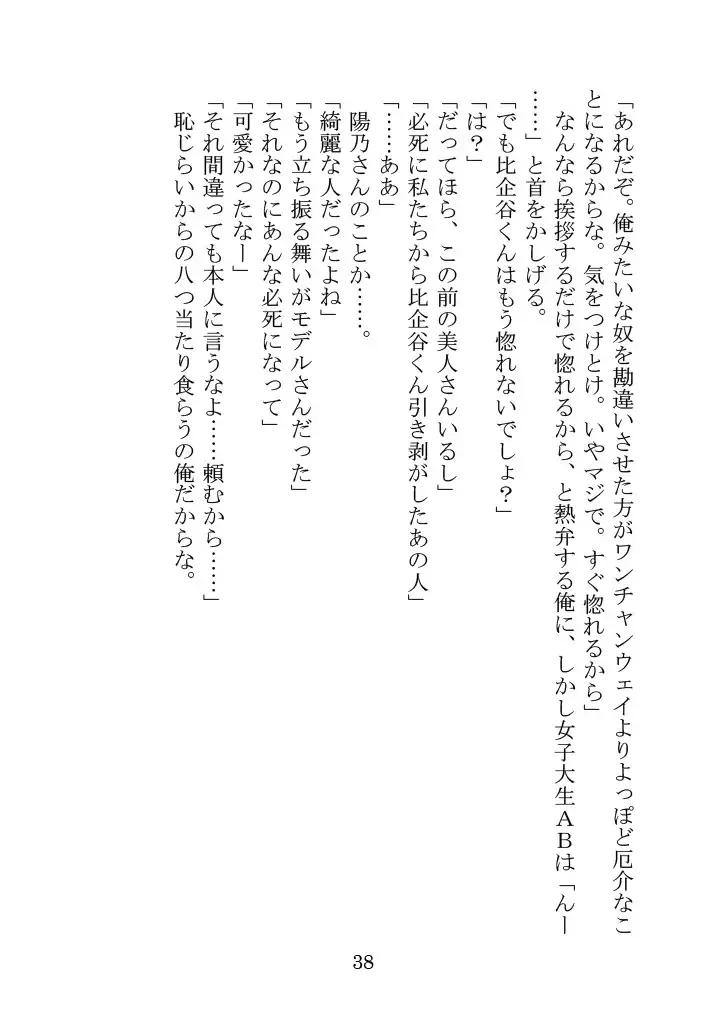 「あれだぞ。俺みたいな奴を勘違いさせた方がワンチャンウェイよりよっぽど厄介なこ
とになるからな。気をつけとけ。いやマジで。すぐ惚れるから」
　なんなら挨拶するだけで惚れるから、と熱弁する俺に、しかし女子大生ＡＢは「んー
……」と首をかしげる。
「でも比企谷くんはもう惚れないでしょ？」
「は？」
「だってほら、この前の美人さんいるし」
「必死に私たちから比企谷くん引き剥がしたあの人」
「……ああ」
　陽乃さんのことか……。
「綺麗な人だったよね」
「もう立ち振る舞いがモデルさんだった」
「それなのにあんな必死になって」
「可愛かったなー」
「それ間違っても本人に言うなよ……頼むから……」
　恥じらいからの八つ当たり食らうの俺だからな。
38